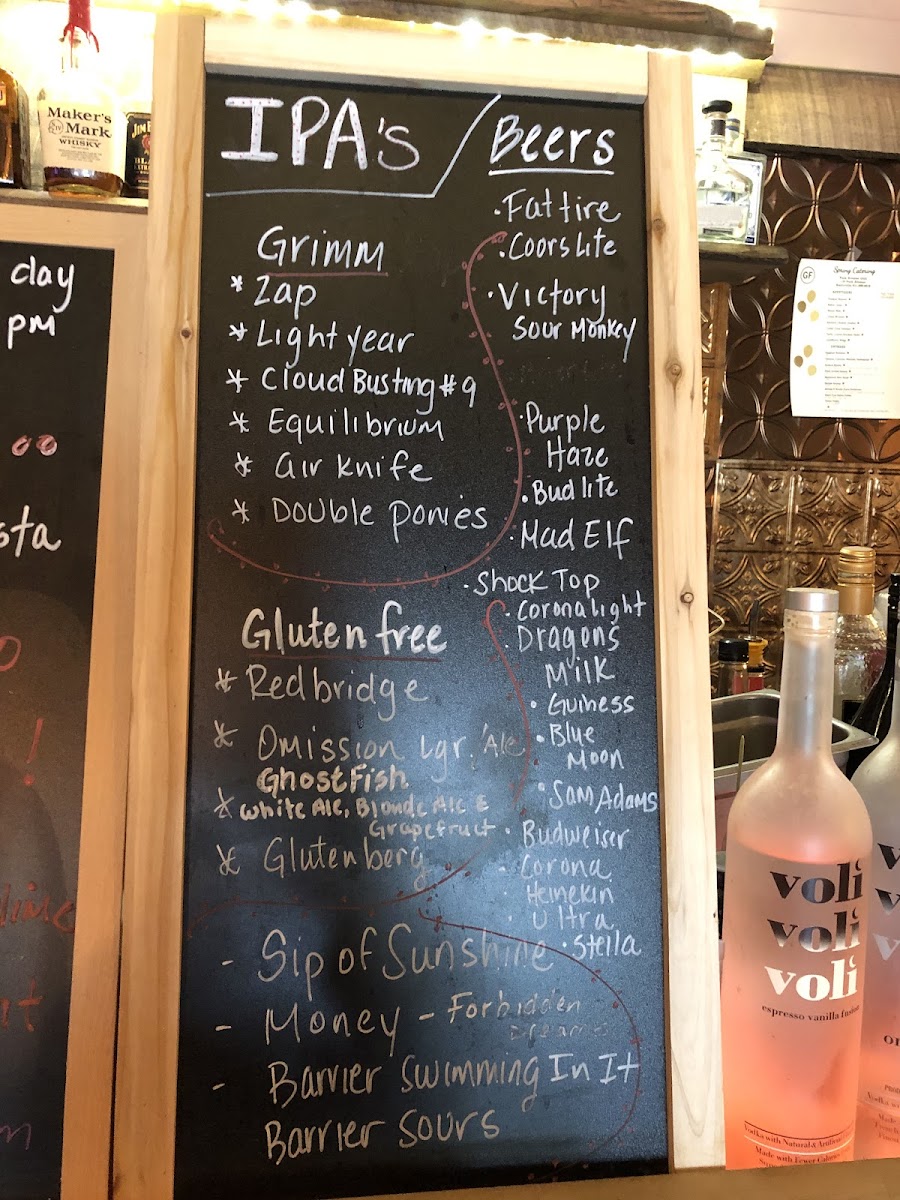 IPA's / Beers
Grimm
* Zap
* Light year
* Cloud Busting #9
* Equilibrium
* air knife
* Double Ponies
Gluten free
* Redbridge
* Omission Lgr. 'Ale
Ghostfish
* White Ale, Blonde Ale &
Grapefruit
* Glutenberg
- Sip of Sunshine
- Money - Forbidden
- Barrier Swimming In It
Barrier Sours
· Fat tire
· Coors Lite
· Victory
Sour Monkey
· Purple
Haze
· Bud lite
· Mad Elf
· Shock Top
· Corona light
· Dragons
Milk
· Guiness
· Blue
Moon
· Sam Adams
· Budweiser
· Corona
· Heinekin
· Ultra
· Stella
Maker's
Mark
WHISKY
JIM BEAM
day
pm
sta
!
GF
Spring Catering
voli
voli
voli
espresso vanilla fusion
Vodka with Natural & Artificial
Made with Fewer Calories